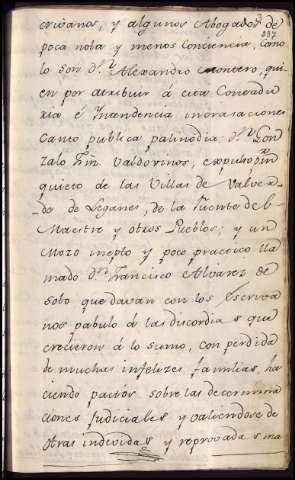 237
crivanos, y algunos Abogados de
poca nota y menos conciencia, como
lo son Dn. Alexandro Montero, qui-
en por atribuir á esta Contadu
ria é Intendencia
Canto publica palinodia Dn. Gon
zalo Frñ. Valdorinos, expulso
quieto de las Villas de Valver-
do de Leganes, de la Fuente del
Maestre y otros Pueblos; y un
Mozo inepto y poco practico lla
mado Dn. Francisco Alvarez de
Soto que davan con los Escriva
nos pabulo á las discordias que
crecieron á lo sumo, con perdida
de muchas infelizes familias, ha
ciendo pactos sobre las determina
ciones Judiciales y valiendose de
otras indevidas y reprovadas ma